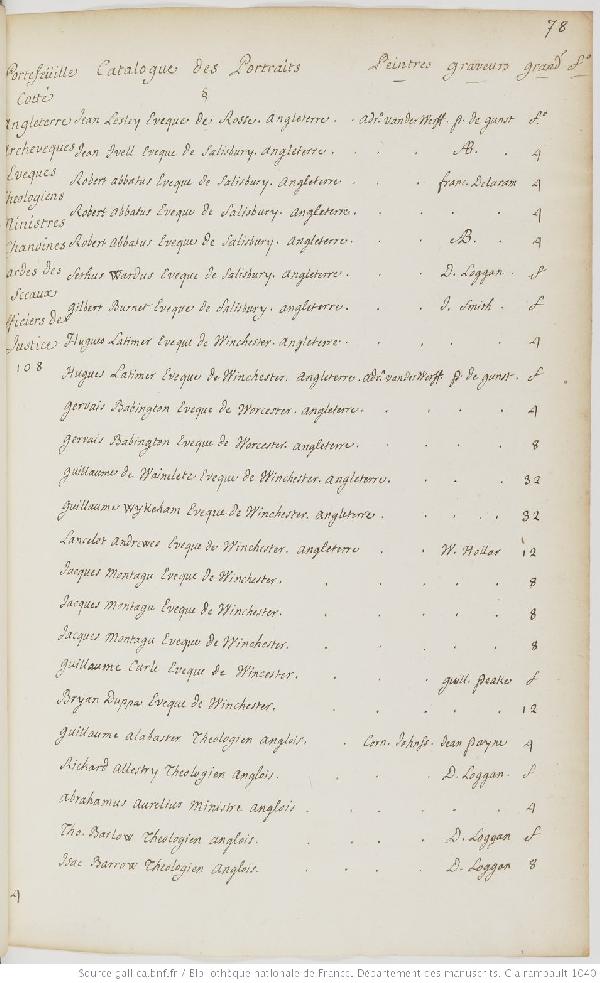 78
Portefeüille Catalogue des Portraits Peintres graveurs grandr fo
Cotté &
Angleterre Jean Lesley Eveque de Rosse. Angleterre. . adr. vander Werff. p. de gunst fo
Archeveques Jean Ivell Eveque de Salisbury. Angleterre . . . AB. . 4
Eveques
Robert abbatus Eveque de Salisbury. Angleterre . . franc. Delaram 4
Theologiens
Robert Abbatus Eveque de Salisbury. Angleterre. . . . . 4
Ministres
Chanoines Robert abbatus Eveque de Salisbury. Angleterre. . . AB. . 4
Gardes des Sethus Wardus Eveque de Salisbury. Angleterre. . . D. Loggan. f
Sceaux
Gilbert Burnet Eveque de Salisbury. angleterre. . . J. Smith. f
Officiers de
Justice Hugues Latimer Eveque de Winchester. Angleterre. . . . . 4
108
Hugues Latimer Eveque de Winchester. Angleterre. adr. vander Werff. p. de gunst. f
gervais Babington Eveque de Worcester. angleterre. . . . . 4
gervais Babington Eveque de Worcester. angleterre. . . . . 8
guillaume de Wainflete Eveque de Winchester. angleterre. . . . 32
guillaume Wykeham Eveque de Winchester. angleterre. . . . 32
Lancelot Andrewes Eveque de Winchester. angleterre . . W. Hollar 12
Jacques Montagu Eveque de Winchester. . . . . . 8
Jacques Montagu Eveque de Winchester. . . . . . 8
Jacques Montagu Eveque de Winchester. . . . . . 8
guillaume Curle Eveque de Wincester. . . . guill. peake f
Bryan Duppa Eveque de Winchester. . . . . . 12
guillaume alabaster Theologien anglois. . Corn. Johnso. Jean payne 4
Richard Allestry Theologien anglois. . . . D. Loggan. f
abrahamus aurelius Ministre anglois . . . . . 4
Tho. Barlow Theologien anglois. . . . D. Loggan f
Isac Barrow Theologien Anglois. . . . D. Loggan 8
Source gallica.bnf.fr / Bibliothèque nationale de France. Département des manuscrits. Clairambault 1040